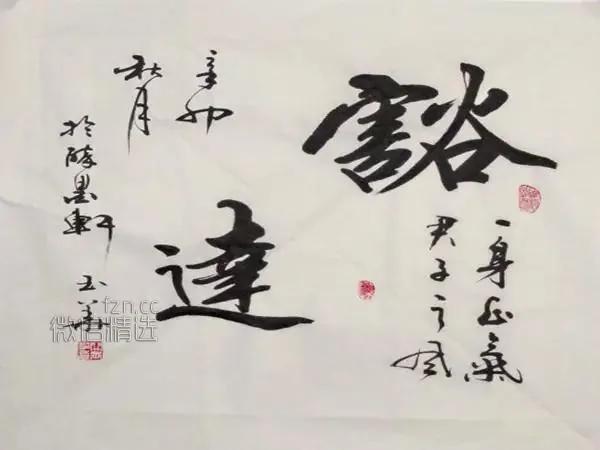 豁
一身正氣
君子之风
達
辛卯
秋月
於醉墨軒
玉華
fzn.cc
微信精选